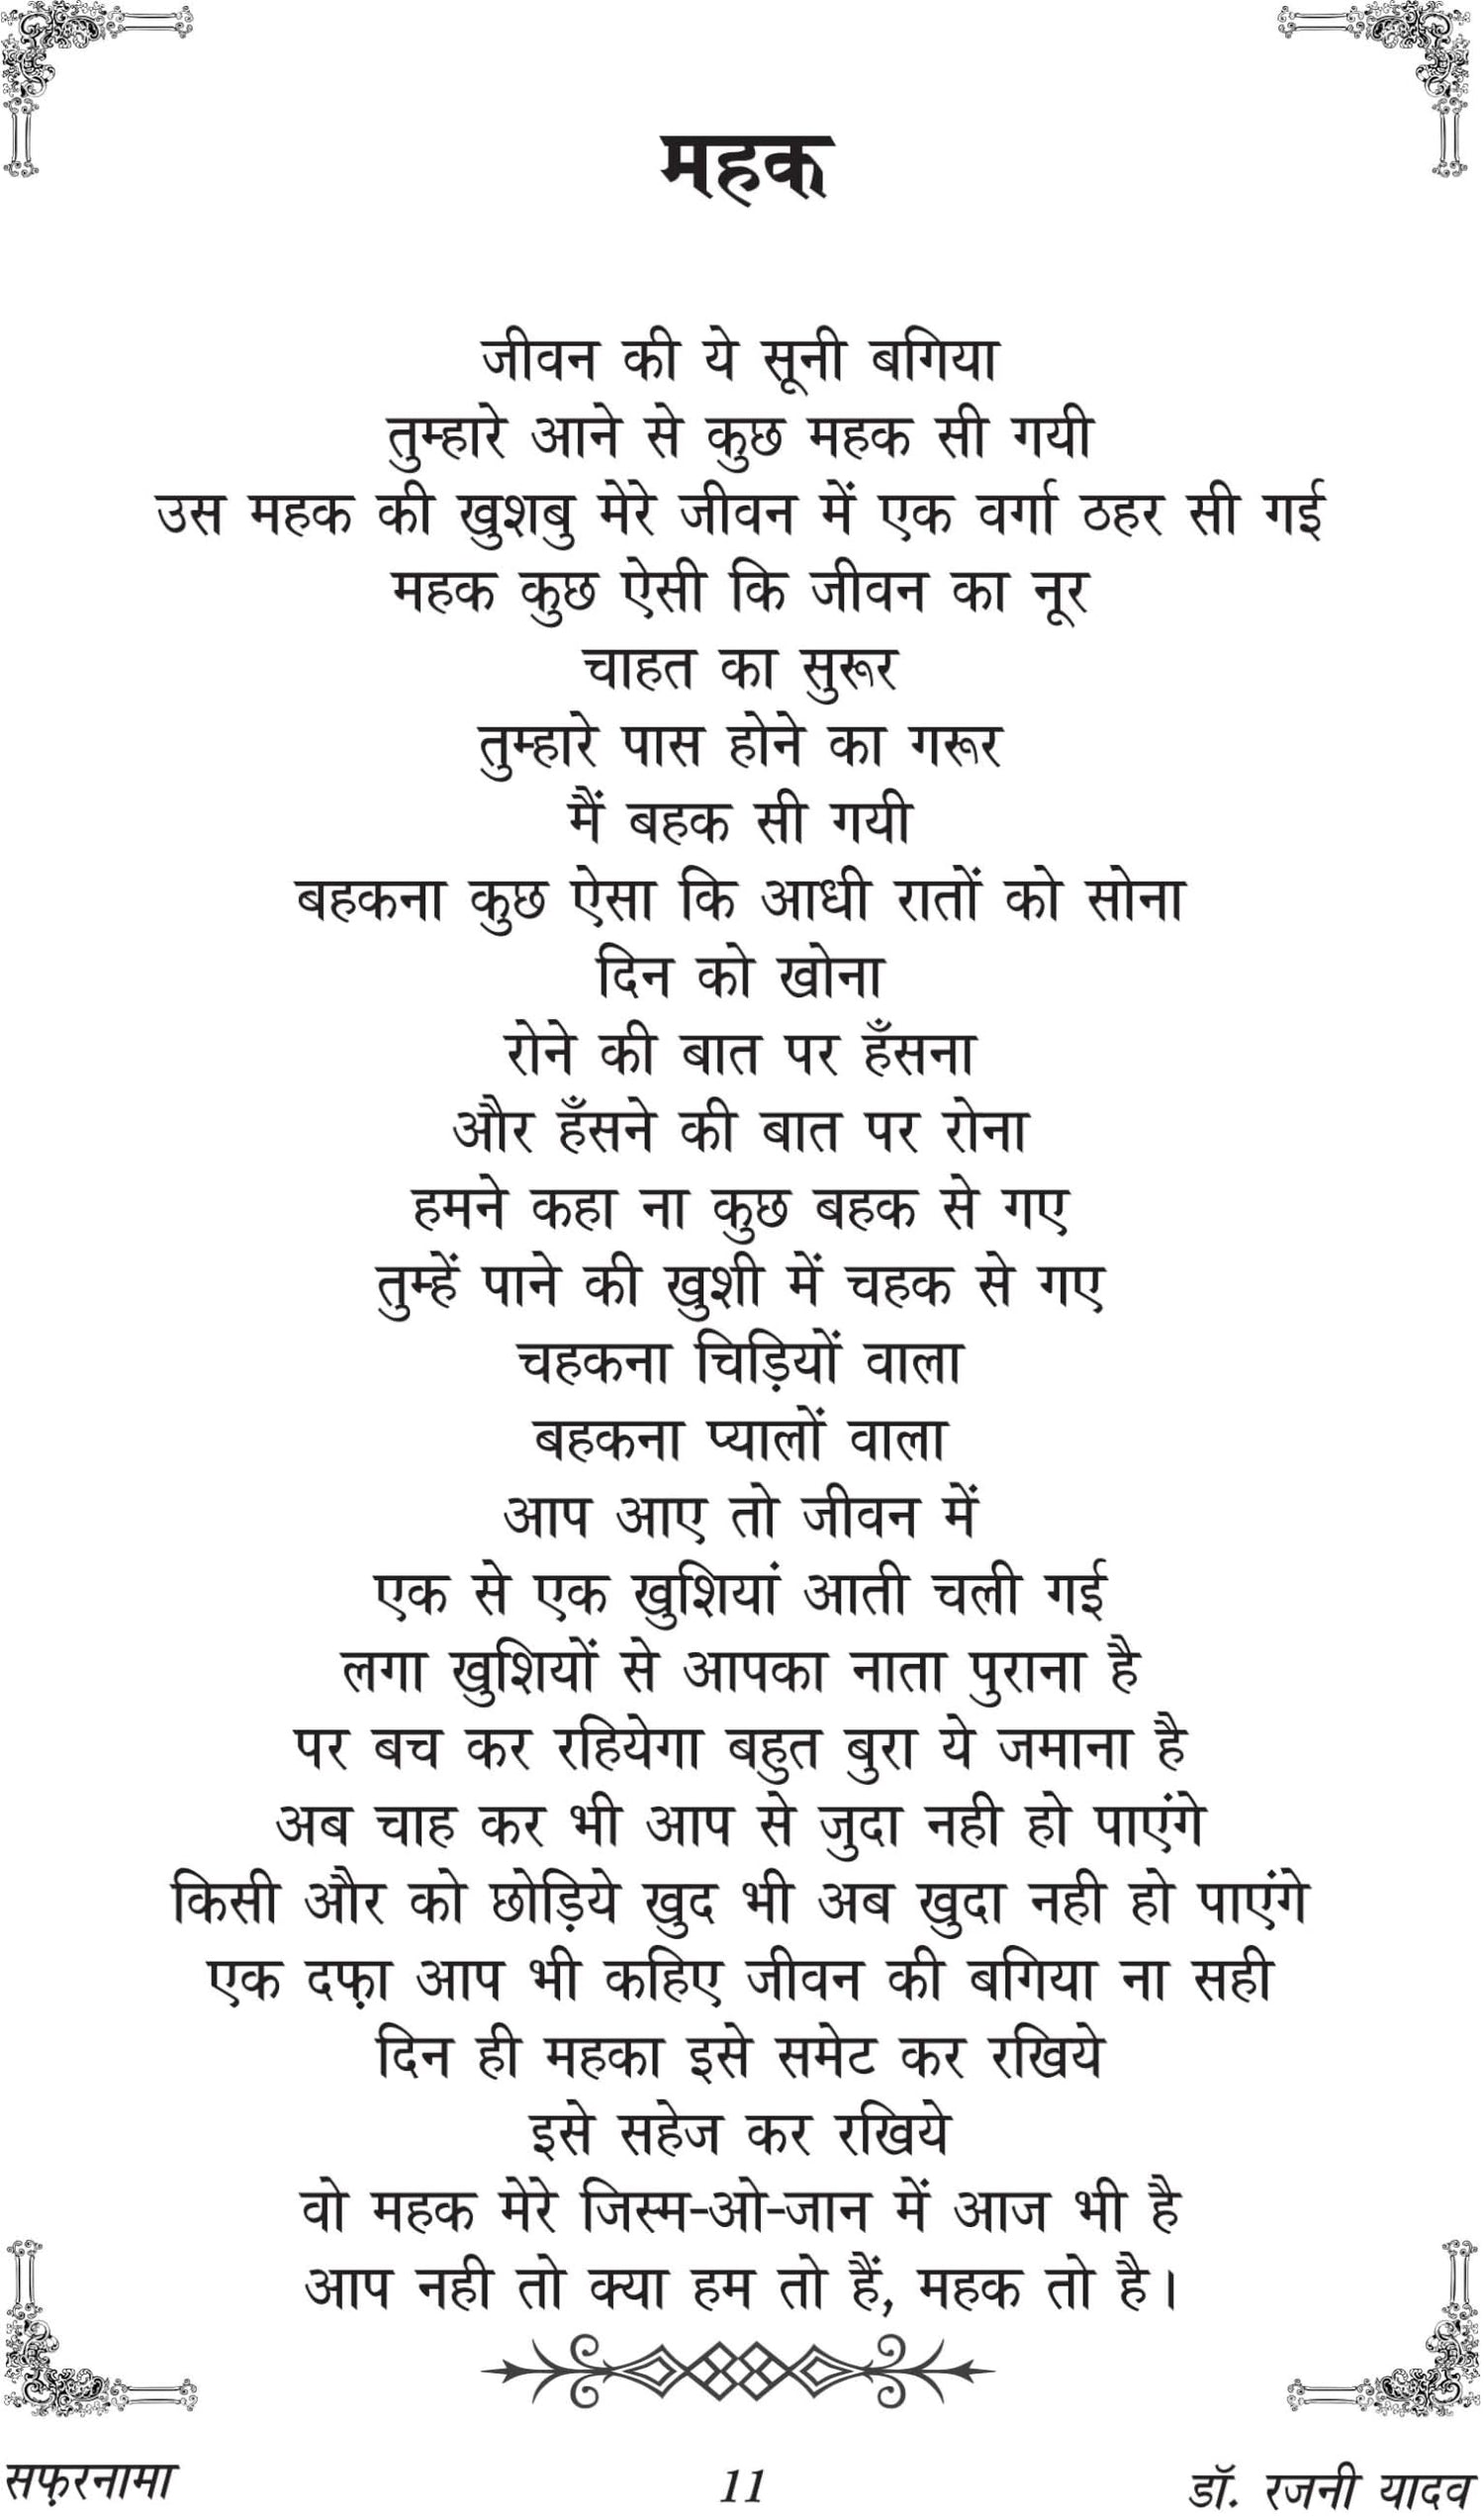 महक
जीवन की ये सूनी बगिया
तुम्हारे आने से कुछ महक सी गयी
उस महक की खुशबु मेरे जीवन में एक वर्गा ठहर सी गई
महक कुछ ऐसी कि जीवन का नूर
चाहत का सुरूर
तुम्हारे पास होने का गरूर
मैं बहक सी गयी
बहकना कुछ ऐसा कि आधी रातों को सोना
दिन को खोना
रोने की बात पर हँसना
और हँसने की बात पर रोना
हमने कहा ना कुछ बहक से गए
तुम्हें पाने की खुशी में चहक से गए
चहकना चिड़ियों वाला
बहकना प्यालों वाला
आप आए तो जीवन में
एक से एक खुशियां आती चली गई
लगा खुशियों से आपका नाता पुराना है
पर बच कर रहियेगा बहुत बुरा ये जमाना है
अब चाह कर भी आप से जुदा नही हो पाएंगे
किसी और को छोड़िये खुद भी अब खुदा नही हो पाएंगे
एक दफ़ा आप भी कहिए जीवन की बगिया ना सही
दिन ही महका इसे समेट कर रखिये
इसे सहेज कर रखिये
वो महक मेरे जिस्म-ओ-जान में आज भी है
आप नही तो क्या हम तो हैं, महक तो है।
सफ़रनामा
11
डॉ. रजनी यादव